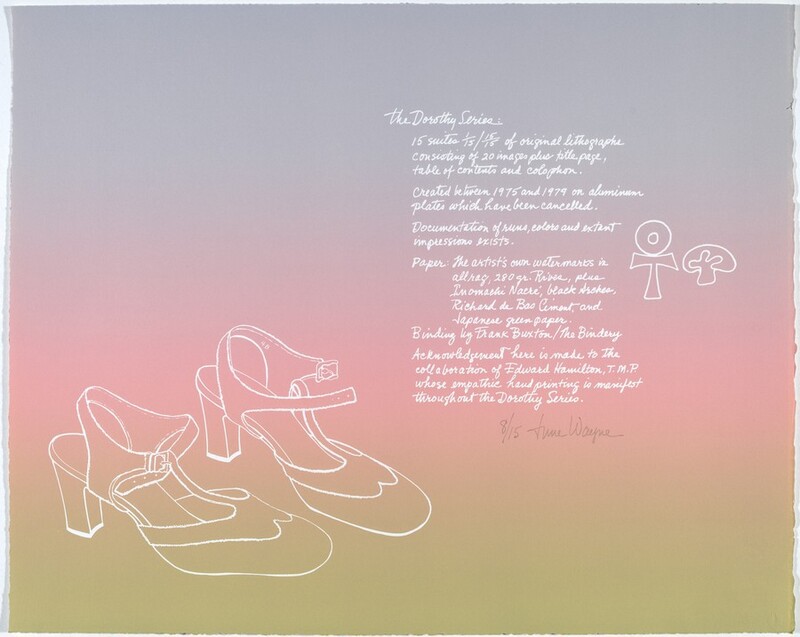 the Dorothy Series:
15 suites 1/15 / 15/15 of original lithographs
consisting of 20 images plus title page,
table of contents and colophon.
Created between 1975 and 1979 on aluminum
plates which have been cancelled.
Documentation of runs, colors and extant
impressions exists.
Paper: The artist's own watermarks in
all rag, 280 gr. Rives, plus
Inomachi Nacre, black Arches,
Richard de Bas Ciment, and
Japanese green paper.
Binding by Frank Buxton/The Bindery
Acknowledgement here is made to the
collaboration of Edward Hamilton, T.M.P.
whose empathic hand printing is manifest
throughout the Dorothy Series.
8/15 June Wayne